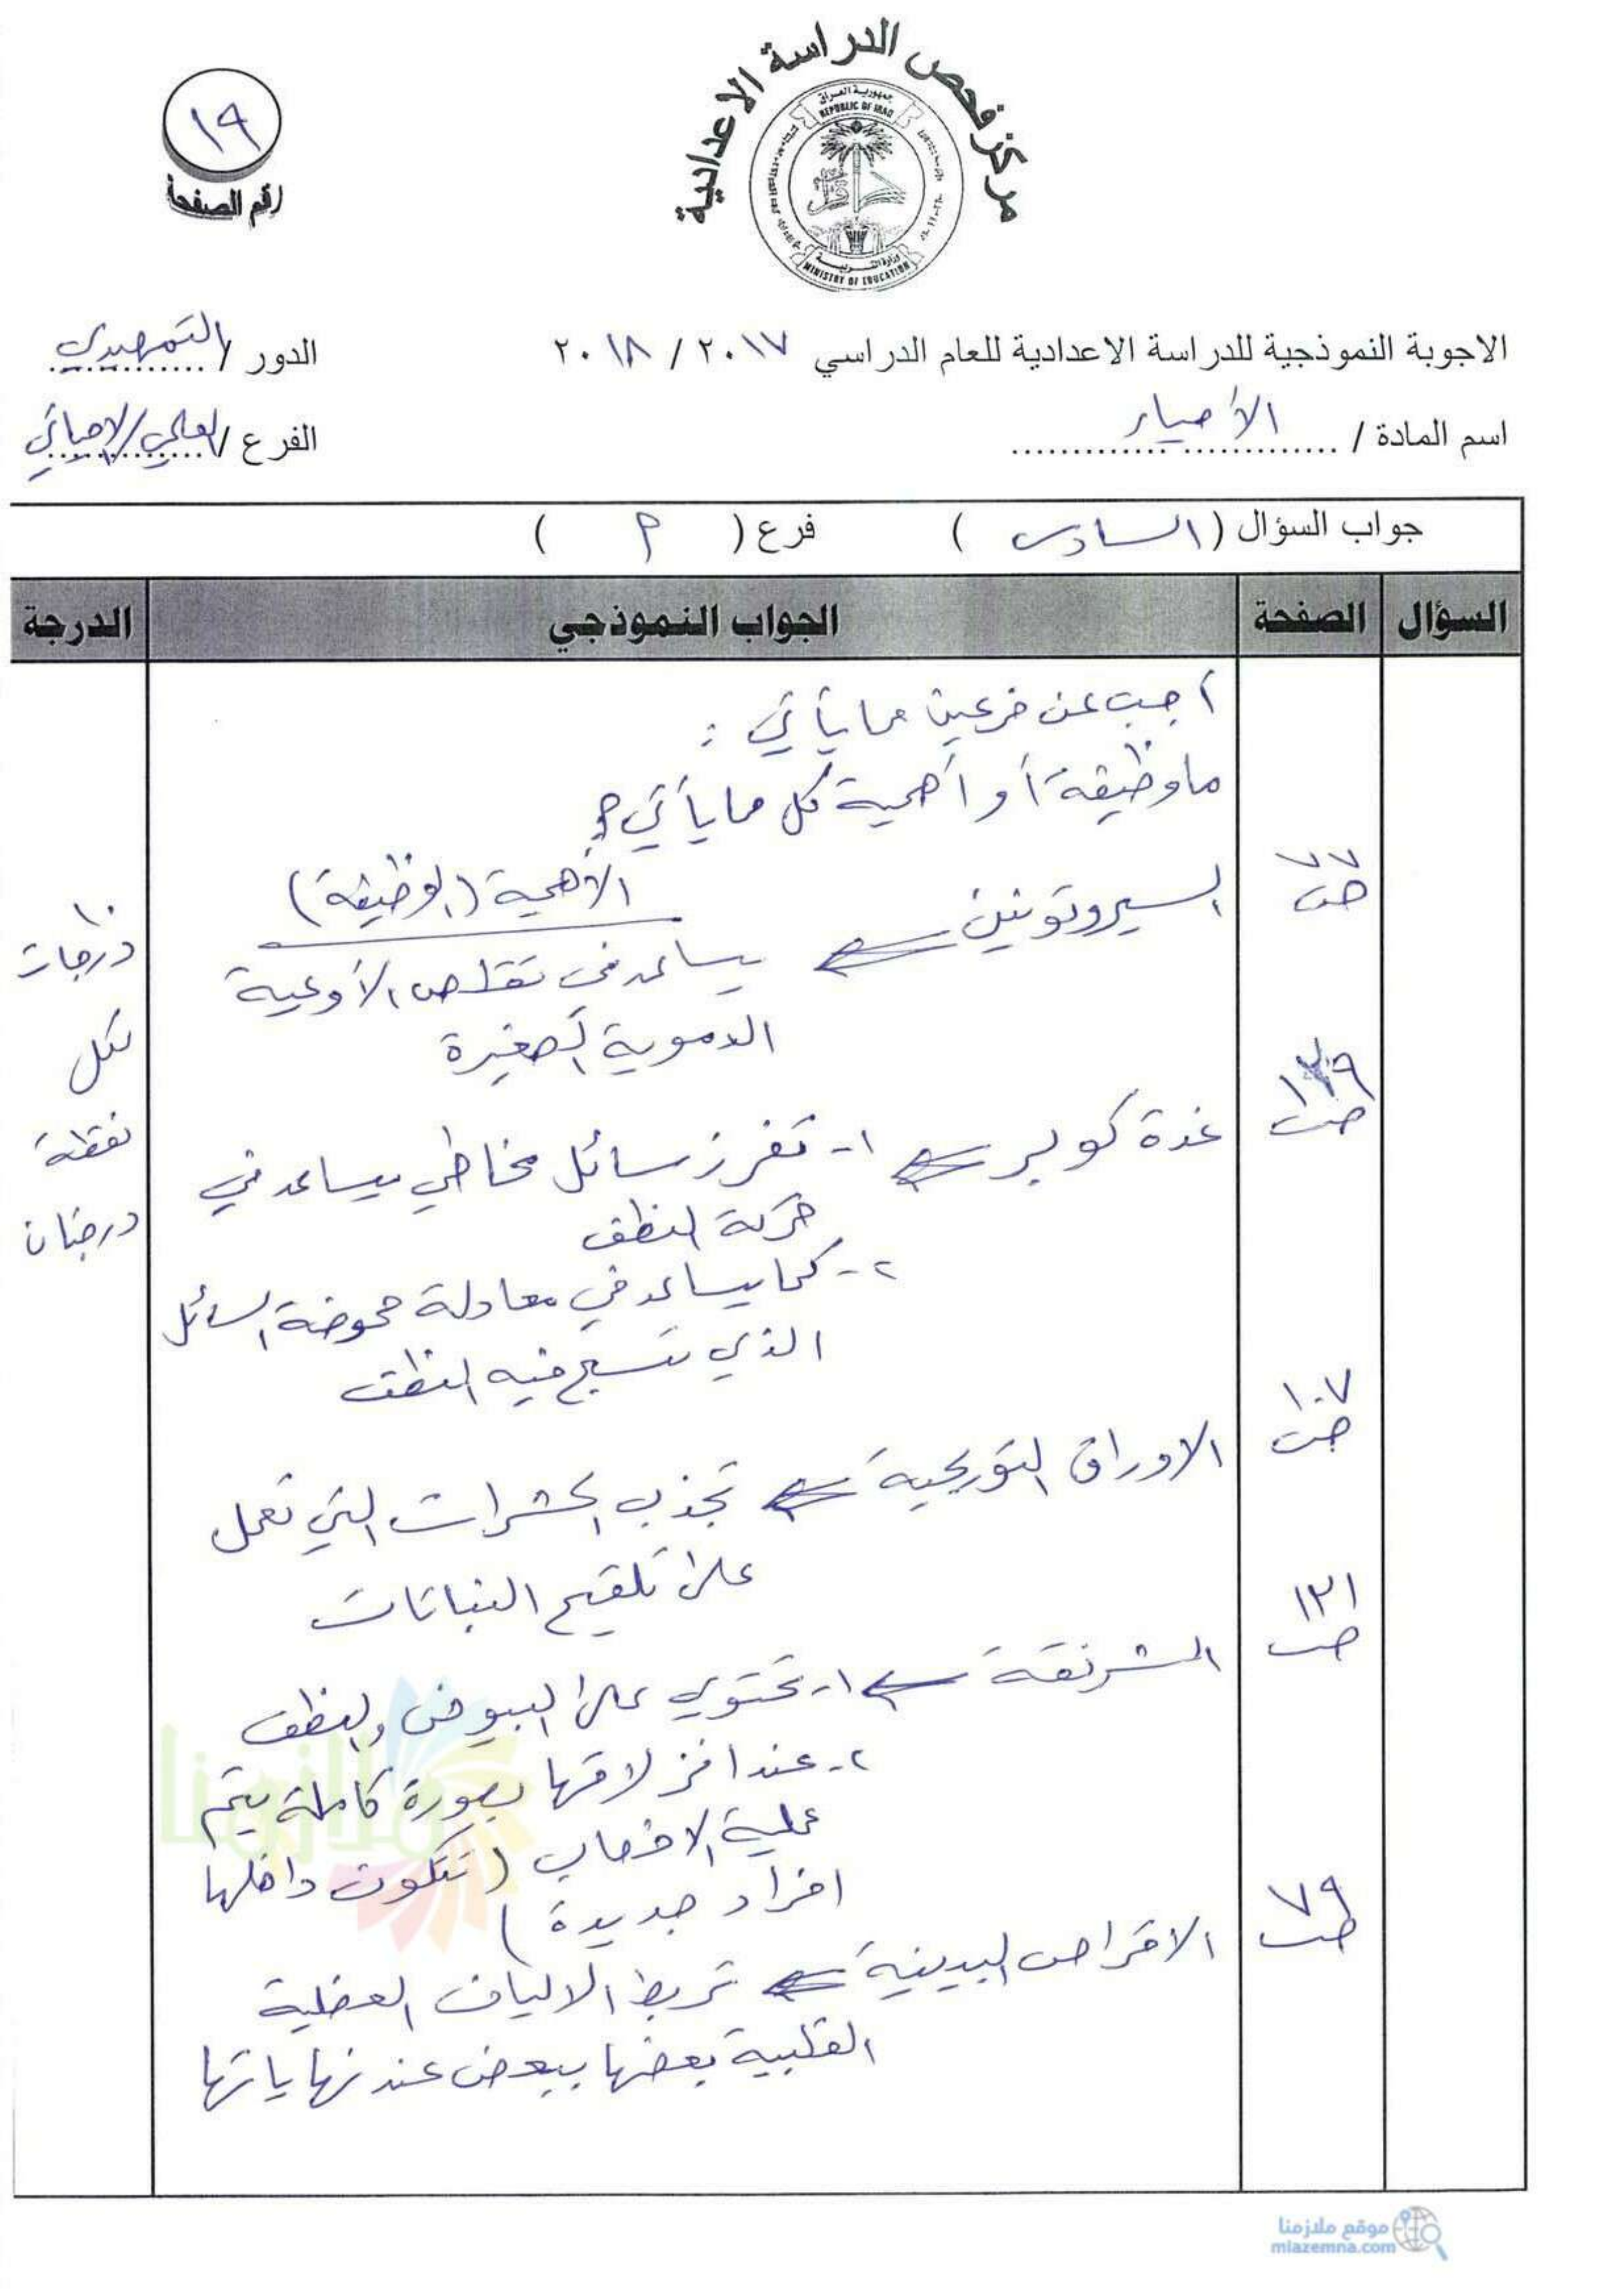 مركز فحص الدراسة الاعدادية
جمهورية العراق
REPUBLIC OF IRAQ
وزارة التربية
MINISTRY OF EDUCATION
١٩
رقم الصفحة
الاجوبة النموذجية للدراسة الاعدادية للعام الدراسي ٢٠١٧ / ٢٠١٨
الدور / التمهيدي
اسم المادة / الأحياء
الفرع / العلمي/الاحيائي
جواب السؤال ( السادس ) فرع ( أ )
السؤال الصفحة الجواب النموذجي الدرجة
أجب عن فرعين مما يأتي :
ما وظيفة أو أهمية كل مما يأتي؟
الأهمية (الوظيفة)
٧٧ ص السيروتونين ⇐ يساعد في تقلص الأوعية
الدموية الصغيرة
١٠
درجات
لكل
نقطة
درجتان
ص غدة كوبر ⇐ ١- تفرز سائل مخاطي يساعد في
حركة النطف
٢- كما يساعد في معادلة حموضة السائل
الذي تسبح فيه النطف
١٠٧ ص الاوراق التويجية ⇐ تجذب الحشرات التي تعمل
على تلقيح النباتات
١٣١ ص الشرنقة ⇐ ١- تحتوي على البيوض والنطف
٢- عند انزلاقها بصورة كاملة يتم
عملية الاخصاب (تتكون داخلها
افراد جديدة)
٧٩ ص الاقراص البينية ⇐ تربط الالياف العضلية
القلبية بعضها ببعض عند نهاياتها
ملازمنا
موقع ملازمنا
mlazemna.com